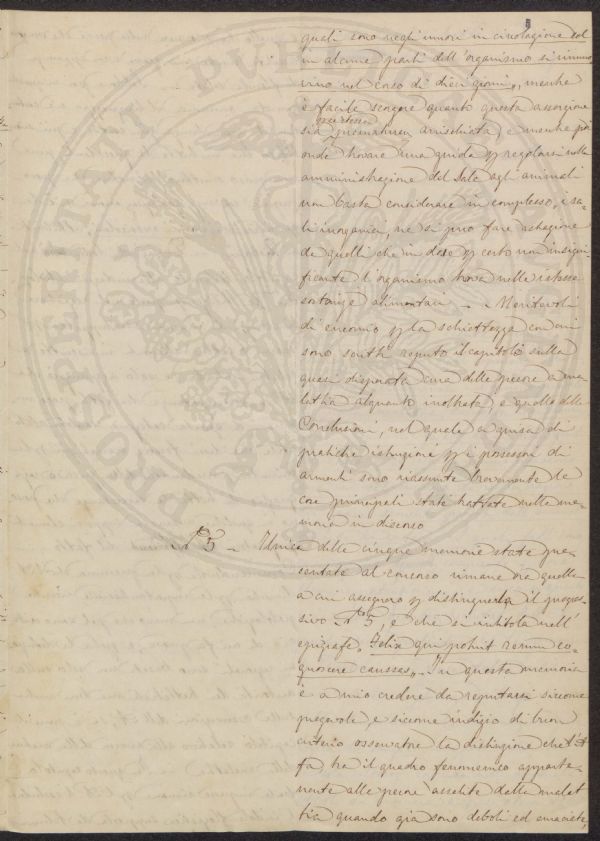 8
quali sono negli umori in circolazione ed
in alcune parti dell'organismo si rinno
vino nel corso di dieci giorni,, mentre
è facile scorgere quanto questa asserzione
sia arrischiata, e mentre per
onde trovare una guida p regolarsi nella
amministrazione del Sale agli animali
non basta considerare in complesso, i sa-
li inorganici, nè si può fare astrazione
da quelli che in dose p certo non insigni-
ficante l'organismo trova nelle istesse
sostanze alimentari — Meritevoli
di encomio p la schiettezza con cui
sono scritti reputo il capitolo sulla
quasi disperata cura delle pecore a ma
lattia alquanto inoltrata, e quello delle
Conclusioni, nel quale a guisa di
pratiche istruzioni p i possessori di
armenti sono riassunte brevemente le
cose principali state trattate nella me-
moria in discorso
N° 5 — Unica delle cinque memorie state pre-
sentate al concorso rimane ora quella
a cui assegnero p distinguerla il progres-
sivo N° 5, e che si intitola nell'
epigrafe. Felix qui potuit rerum co-
gnoscere caussas,,. In questa memoria
è a mio credere da reputarsi siccome
pregevole, e siccome indizio di buon
criterio osservatore la distinzione che si
fa, tra il quadro fenomenico apparte-
nente alle pecore assalite dalla malat
tia quando già sono deboli ed emaciate,